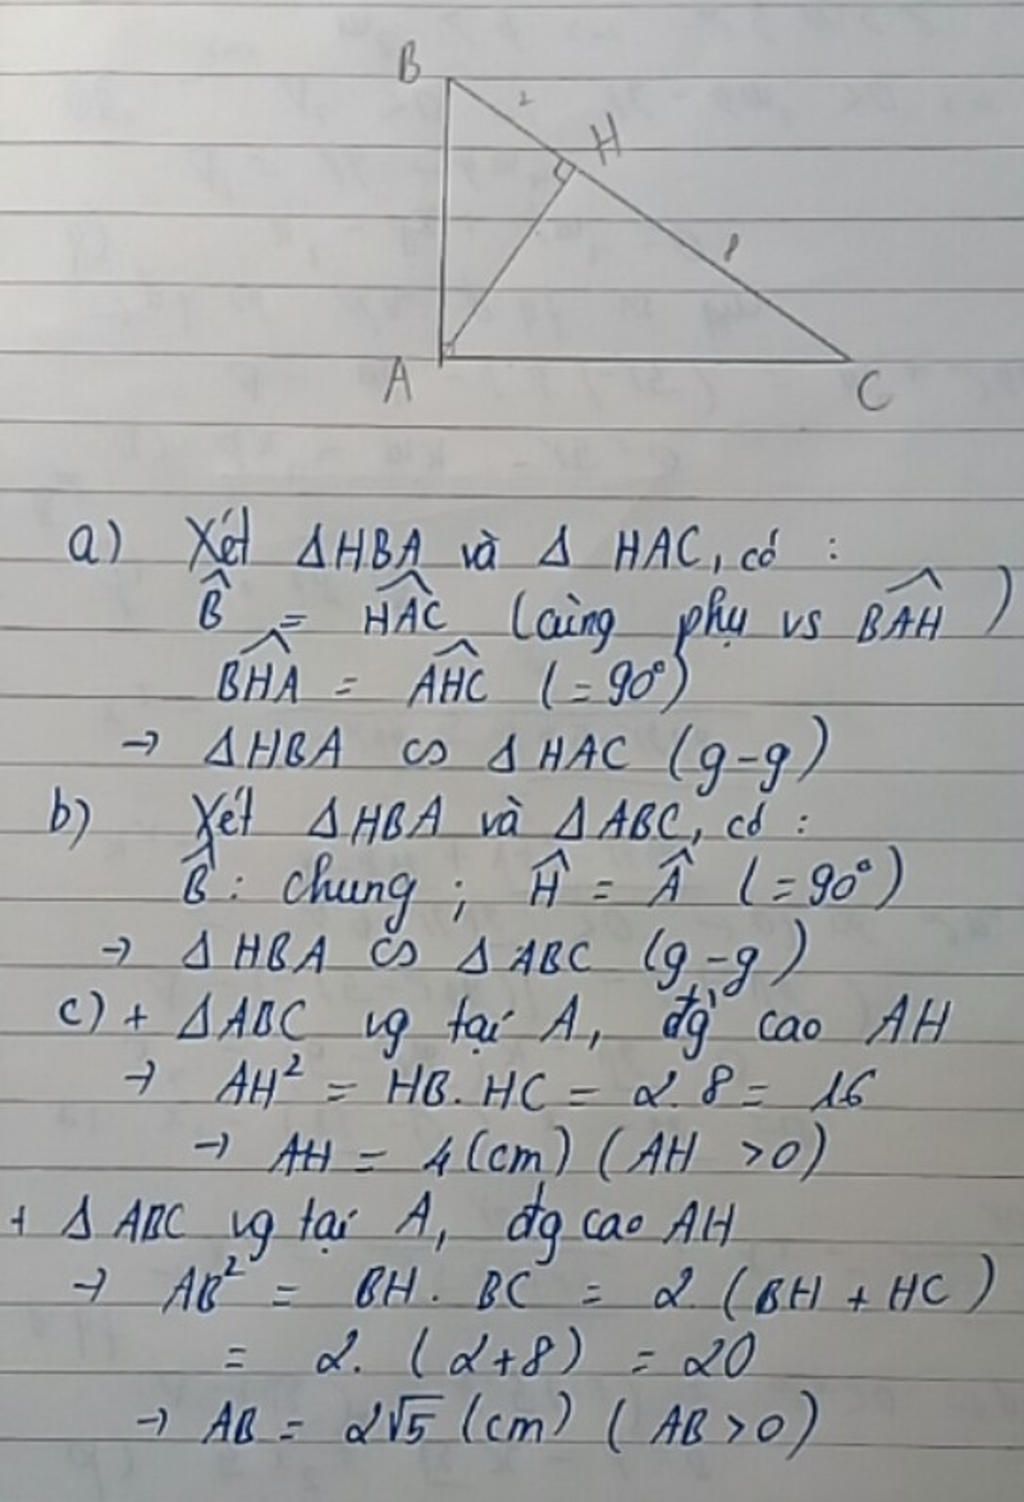 B
2
H
8
A
C
a) Xét ΔHBA và Δ HAC, có :
B̂ = HAC (cùng phụ vs BAH)
BHA = AHC (=90°)
→ ΔHBA ∽ ΔHAC (g-g)
b) Xét ΔHBA và ΔABC, có :
B̂ : chung ; Ĥ = Â (=90°)
→ ΔHBA ∽ ΔABC (g-g)
c) + ΔABC vg tại A, đg` cao AH
→ AH² = HB. HC = 2. 8 = 16
→ AH = 4 (cm) (AH >0)
+ ΔABC vg tại A, đg cao AH
→ AB² = BH . BC = 2. (BH + HC)
= 2. (2+8) = 20
→ AB = 2√5 (cm) (AB>0)